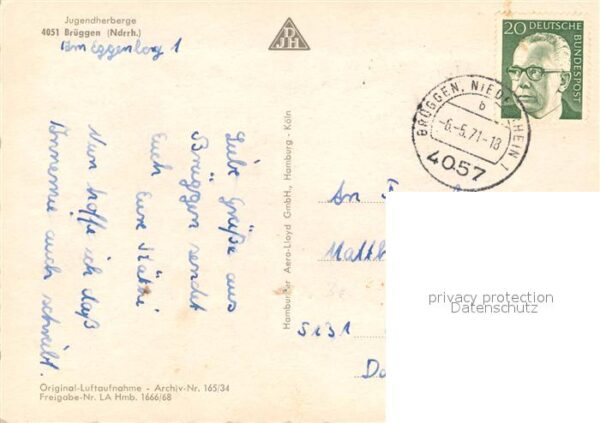 Jugendherberge
4051 Brüggen (Ndrrh.)
Am Eggenberg 1
DJH
20 DEUTSCHE
BUNDESPOST
BRÜGGEN, NIEDERRHEIN 1
b
-6.-5.71-18
4057
Liebe Grüße aus
Brüggen sendet
Euch Eure Käthi
Nun hoffe ich daß
Annemie auch schreibt.
Hamburger Aero-Lloyd GmbH., Hamburg - Köln
An
Matth
5131
privacy protection
Datenschutz
Original-Luftaufnahme - Archiv-Nr. 165/34
Freigabe-Nr. LA Hmb. 1666/68